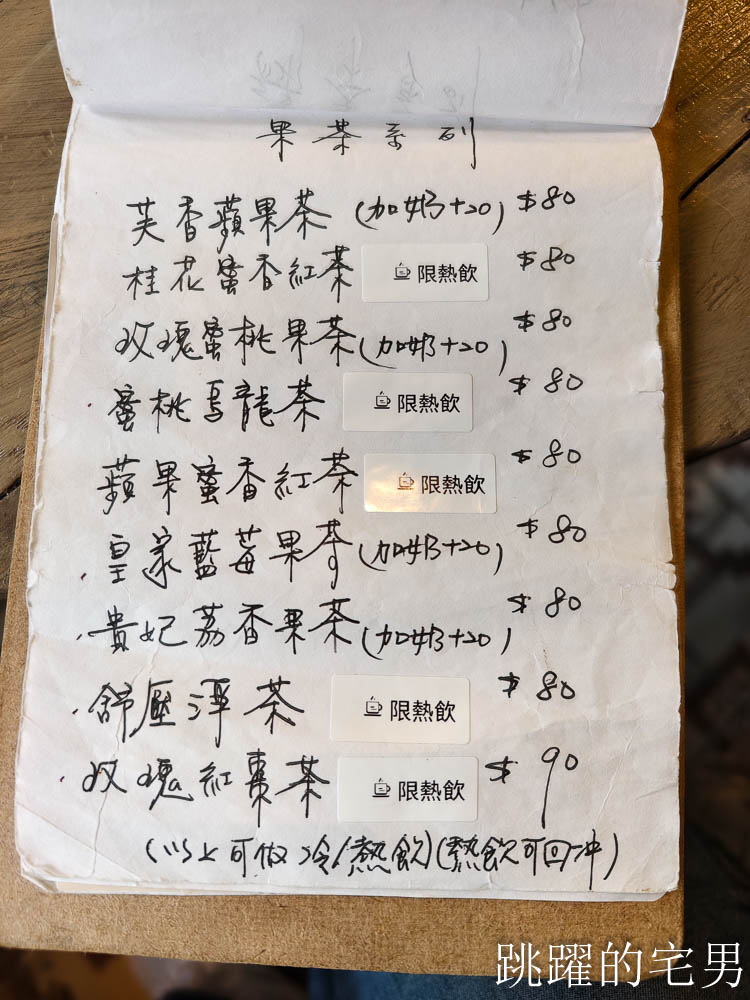 果茶系列
芙香蘋果茶(加奶+20) $80
桂花蜜香紅茶 限熱飲 $80
玫瑰蜜桃果茶(加奶+20) $80
蜜桃烏龍茶 限熱飲 $80
蘋果蜜香紅茶 限熱飲 $80
皇家藍莓果茶(加奶+20) $80
貴妃荔香果茶(加奶+20) $80
舒壓澤茶 限熱飲 $80
玫瑰紅棗茶 限熱飲 $90
(以上可做冷/熱飲)(熱飲可回沖)
跳躍的宅男